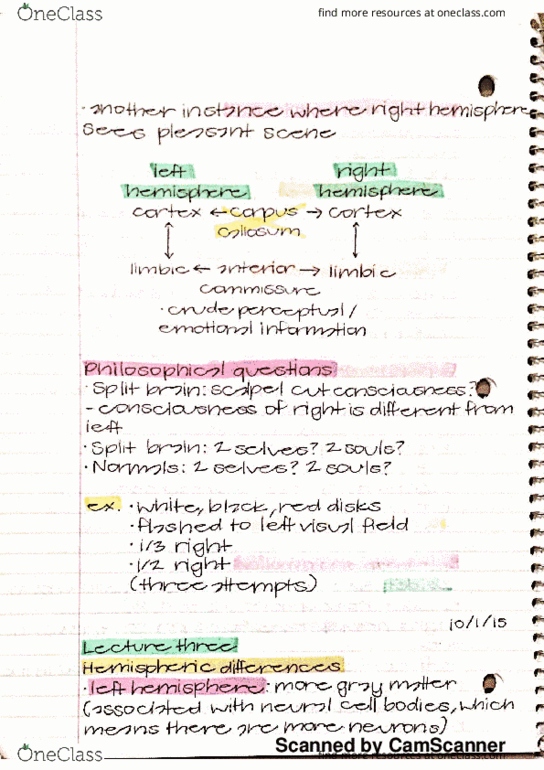 OneClass
find more resources at oneclass.com
· another instance where right hemisphere
sees pleasant scene
left right
hemisphere hemisphere
cortex ← corpus → cortex
callosum
limbic ← anterior → limbic
commissure
· crude perceptual /
emotional information
Philosophical questions
· Split brain: scalpel cut consciousness?
- consciousness of right is different from
left
· Split brain: 2 selves? 2 souls?
· Normals: 2 selves? 2 souls?
ex. · white, black, red disks
· flashed to left visual field
· 1/3 right
· 1/2 right
(three attempts)
10/1/15
Lecture three
Hemispheric differences
· left hemisphere: more gray matter
(associated with neural cell bodies, which
means there are more neurons)
Scanned by CamScanner
OneClass
find more resources at oneclass.com